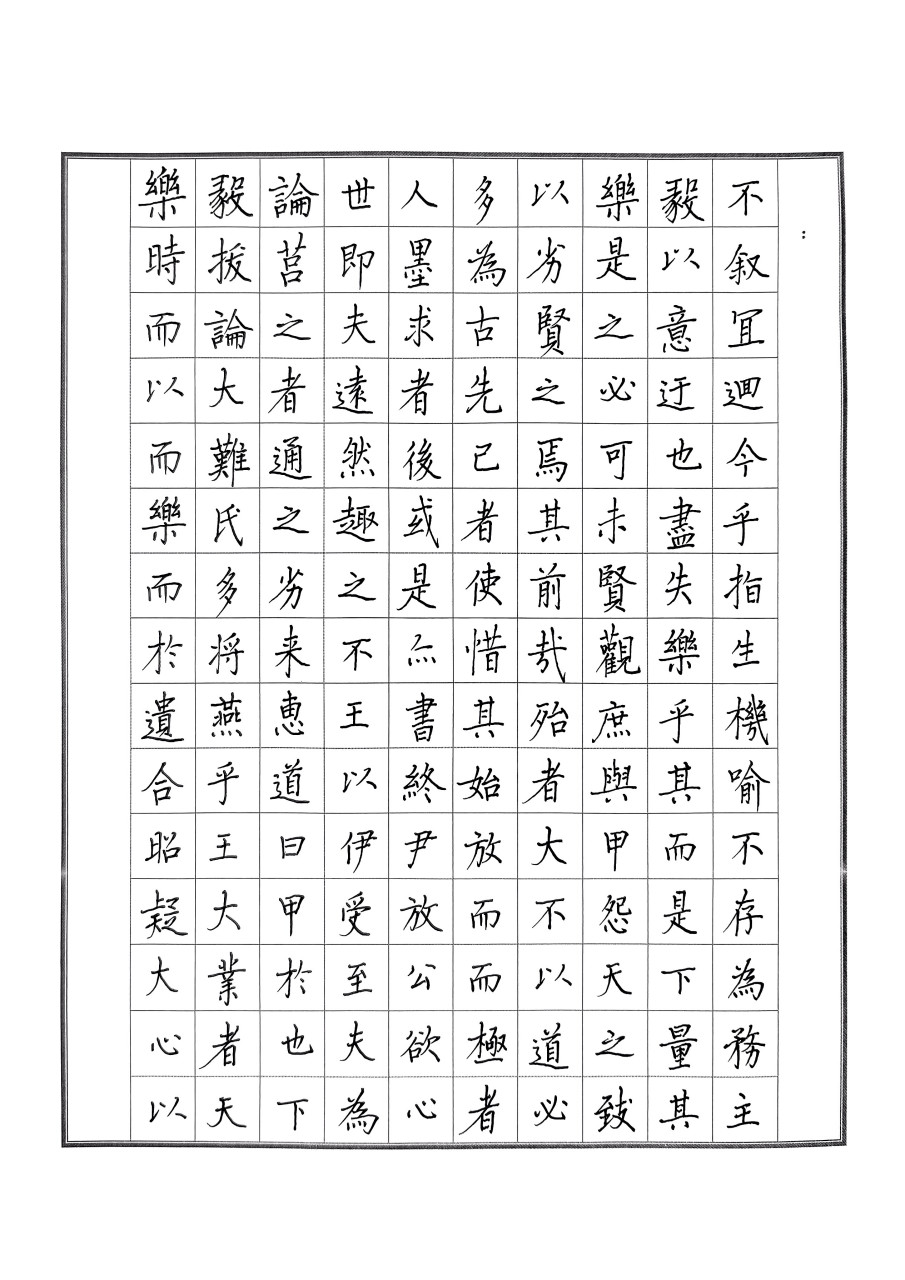 樂毅論世人多以樂毅不
時拔莒即墨為劣是以叙
而論之夫求古賢之意冝
以大者遠者先之必迂迴
而難通然後已焉可也今
樂氏之趣或者其未盡乎
而多劣之是使前賢失指
於将来不亦惜哉觀樂生
遺燕惠王書其殆庶乎機
合乎道以終始者與其喻
昭王曰伊尹放大甲而不
疑大甲受放而不怨是存
大業於至公而以天下為
心者也夫欲極道之量務
以天下為心者必致其主